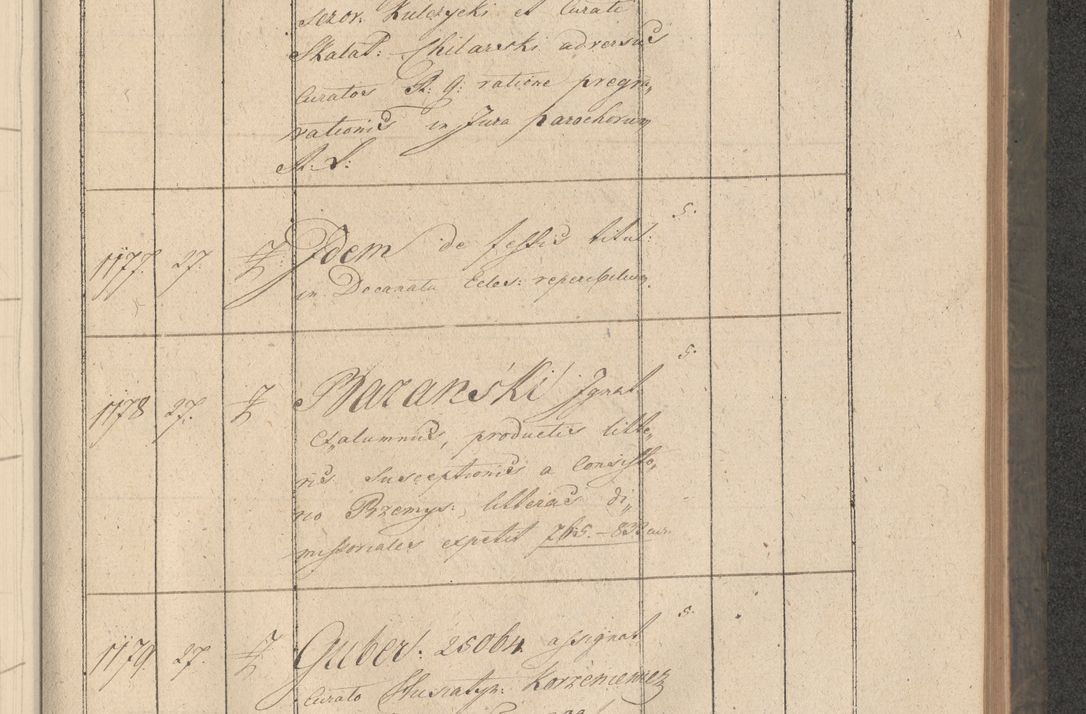 Sezov. Kulczycki et Curati
Skalat: Chilarski adversus
Curatos R: G: ratione prægra„
vationis in Jura parochorum
R: L:
1177. 27. Idem de fessis titul: 5.
in Decanatu Celes: reperibilium.
1178 27. Bazański Ignat 5.
Exalumnus, productis litte„
ris susceptionis a Consisto„
rio Przemys:, litteras di„
missoriales expetit 765. – 832 cur.
1179 27. Guber. 25064 assignat 5.
Curato Husiatyn: Korzeniewicz